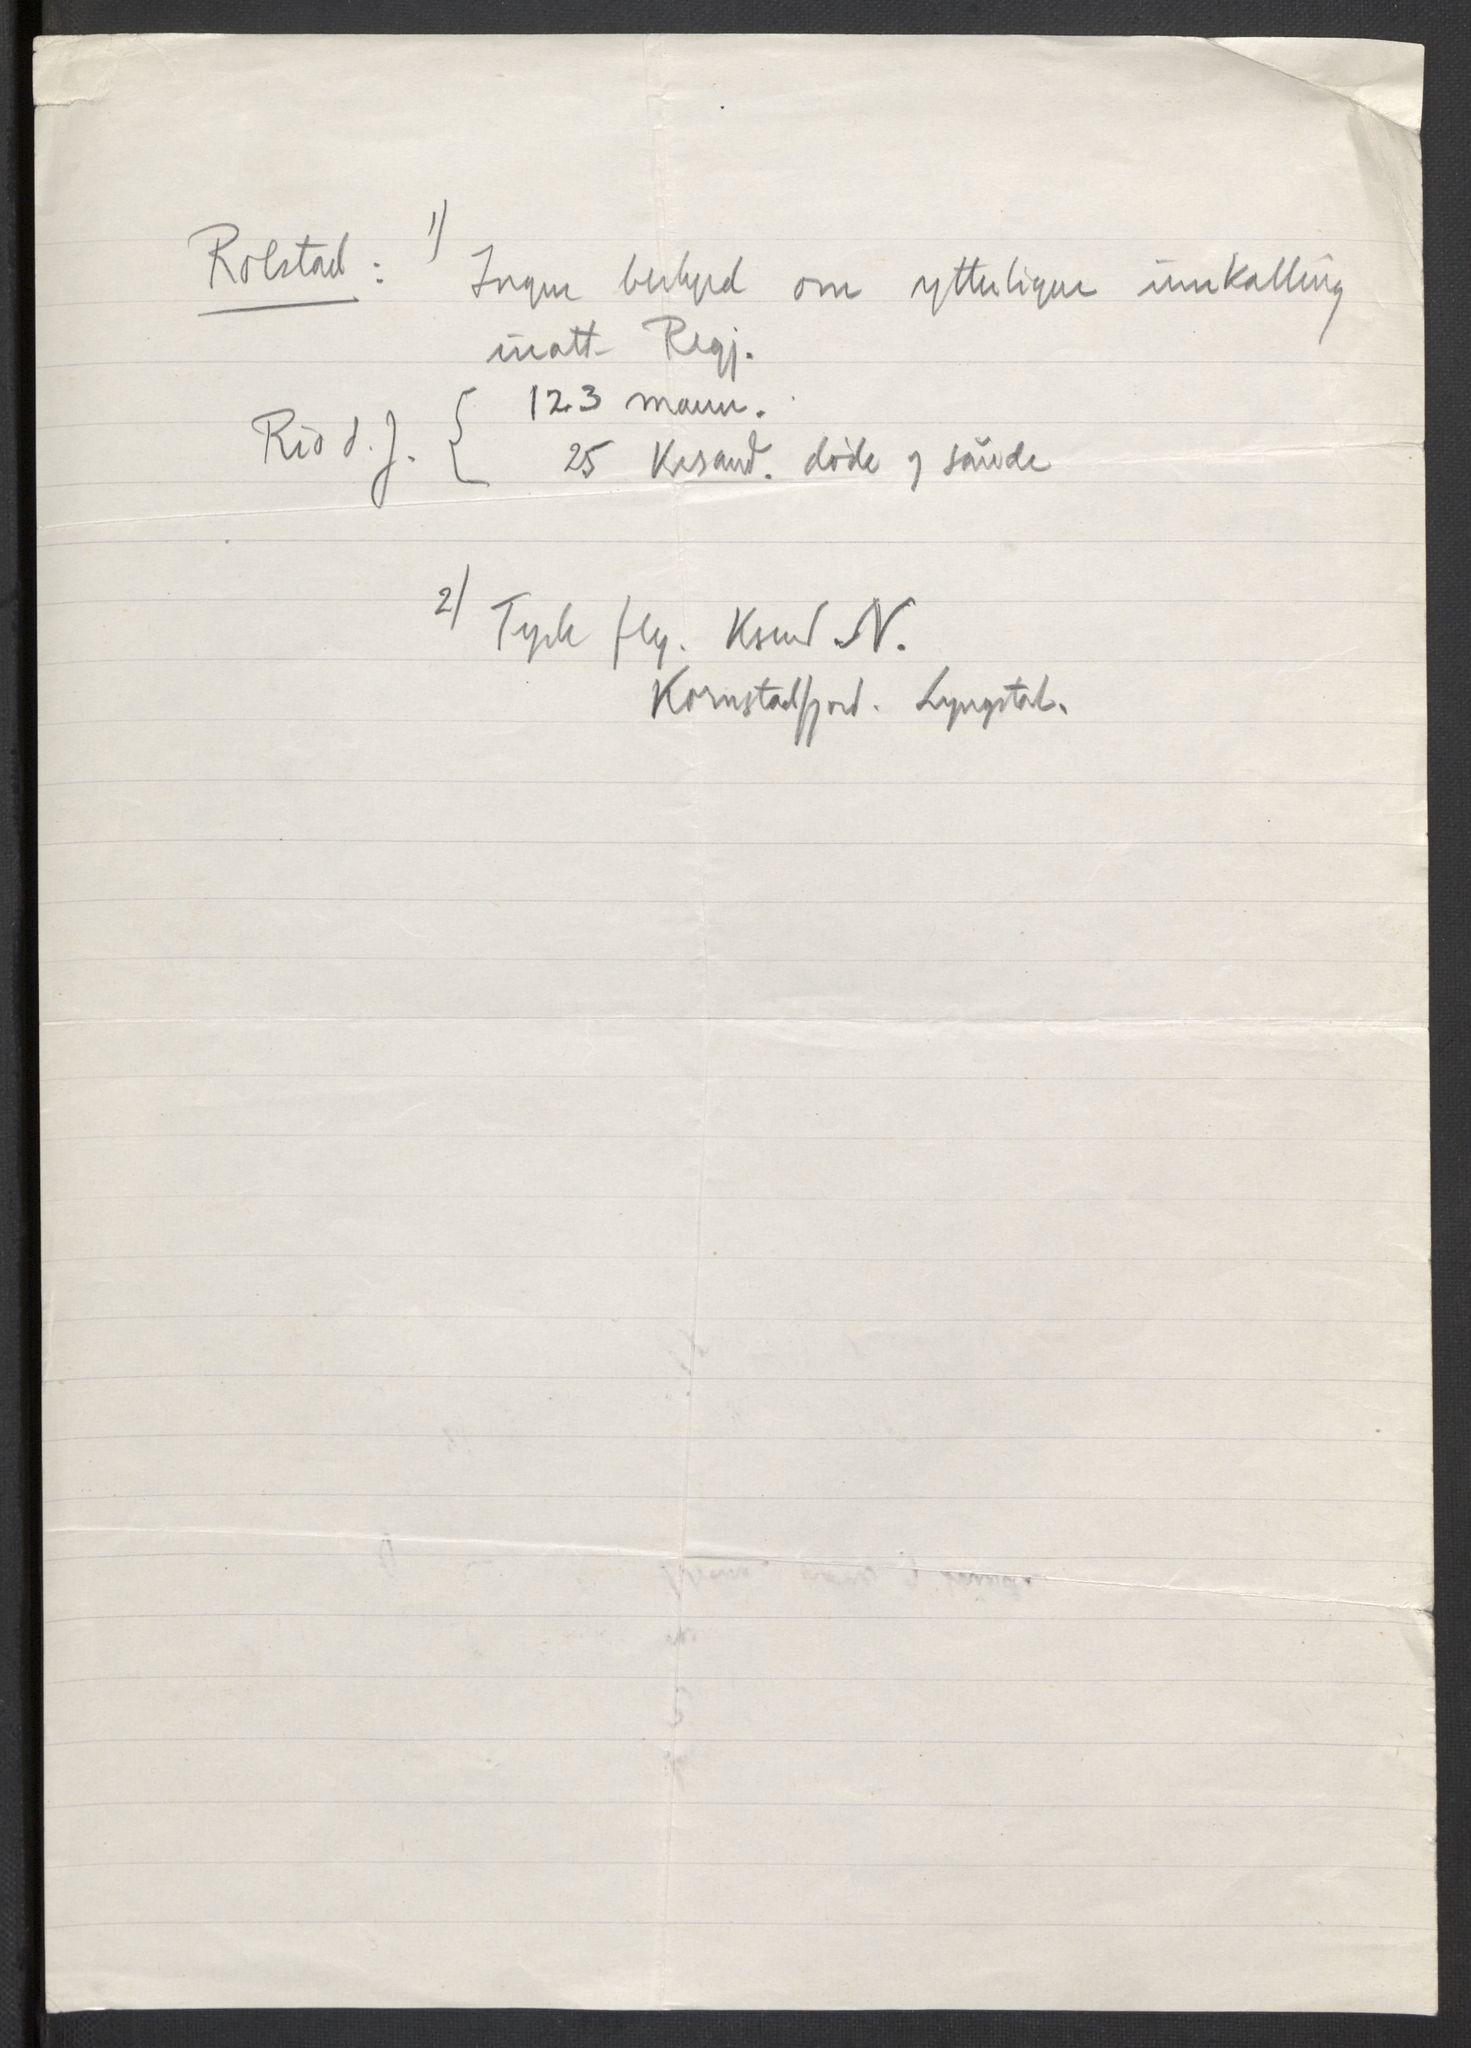 Rolstad: 1) Ingen beskjed om ytterligere innkalling
inatt Regj.
Rio d. J. { 123 mann.
25 Krsand. døde og sårede
2) Tysk fly. Ksund N.
Kornstadfjord. Lyngstad.